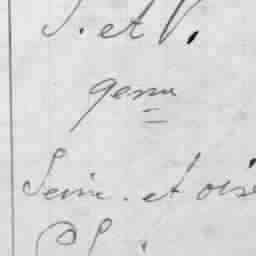 S. et V.
gem
Seine. et oise